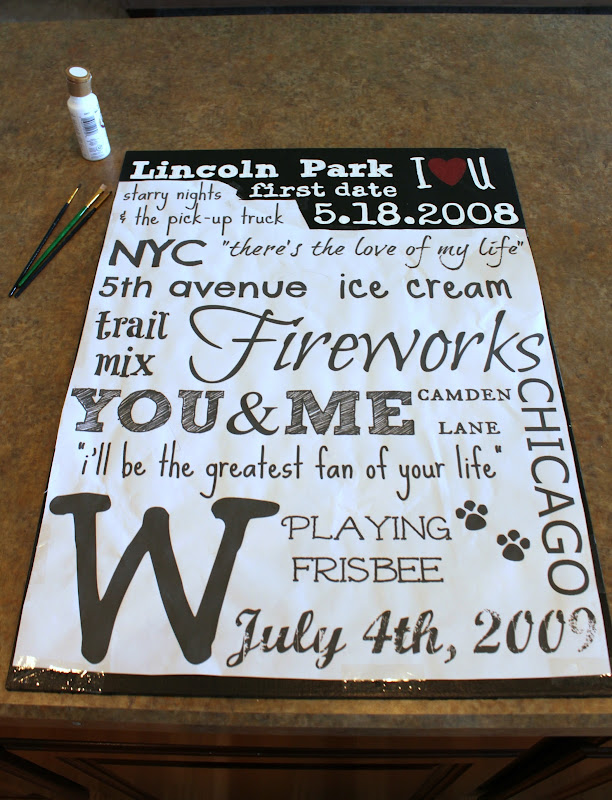 Lincoln Park I ♥ U
first date
starry nights
& the pick-up truck
5.18.2008
NYC "there's the love of my life"
5th avenue ice cream
trail
mix
Fireworks
YOU&ME
CAMDEN
LANE
CHICAGO
"i'll be the greatest fan of your life"
W
PLAYING
FRISBEE
July 4th, 2009